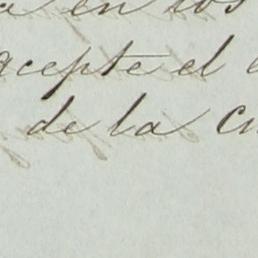 en los
acepte el
de la